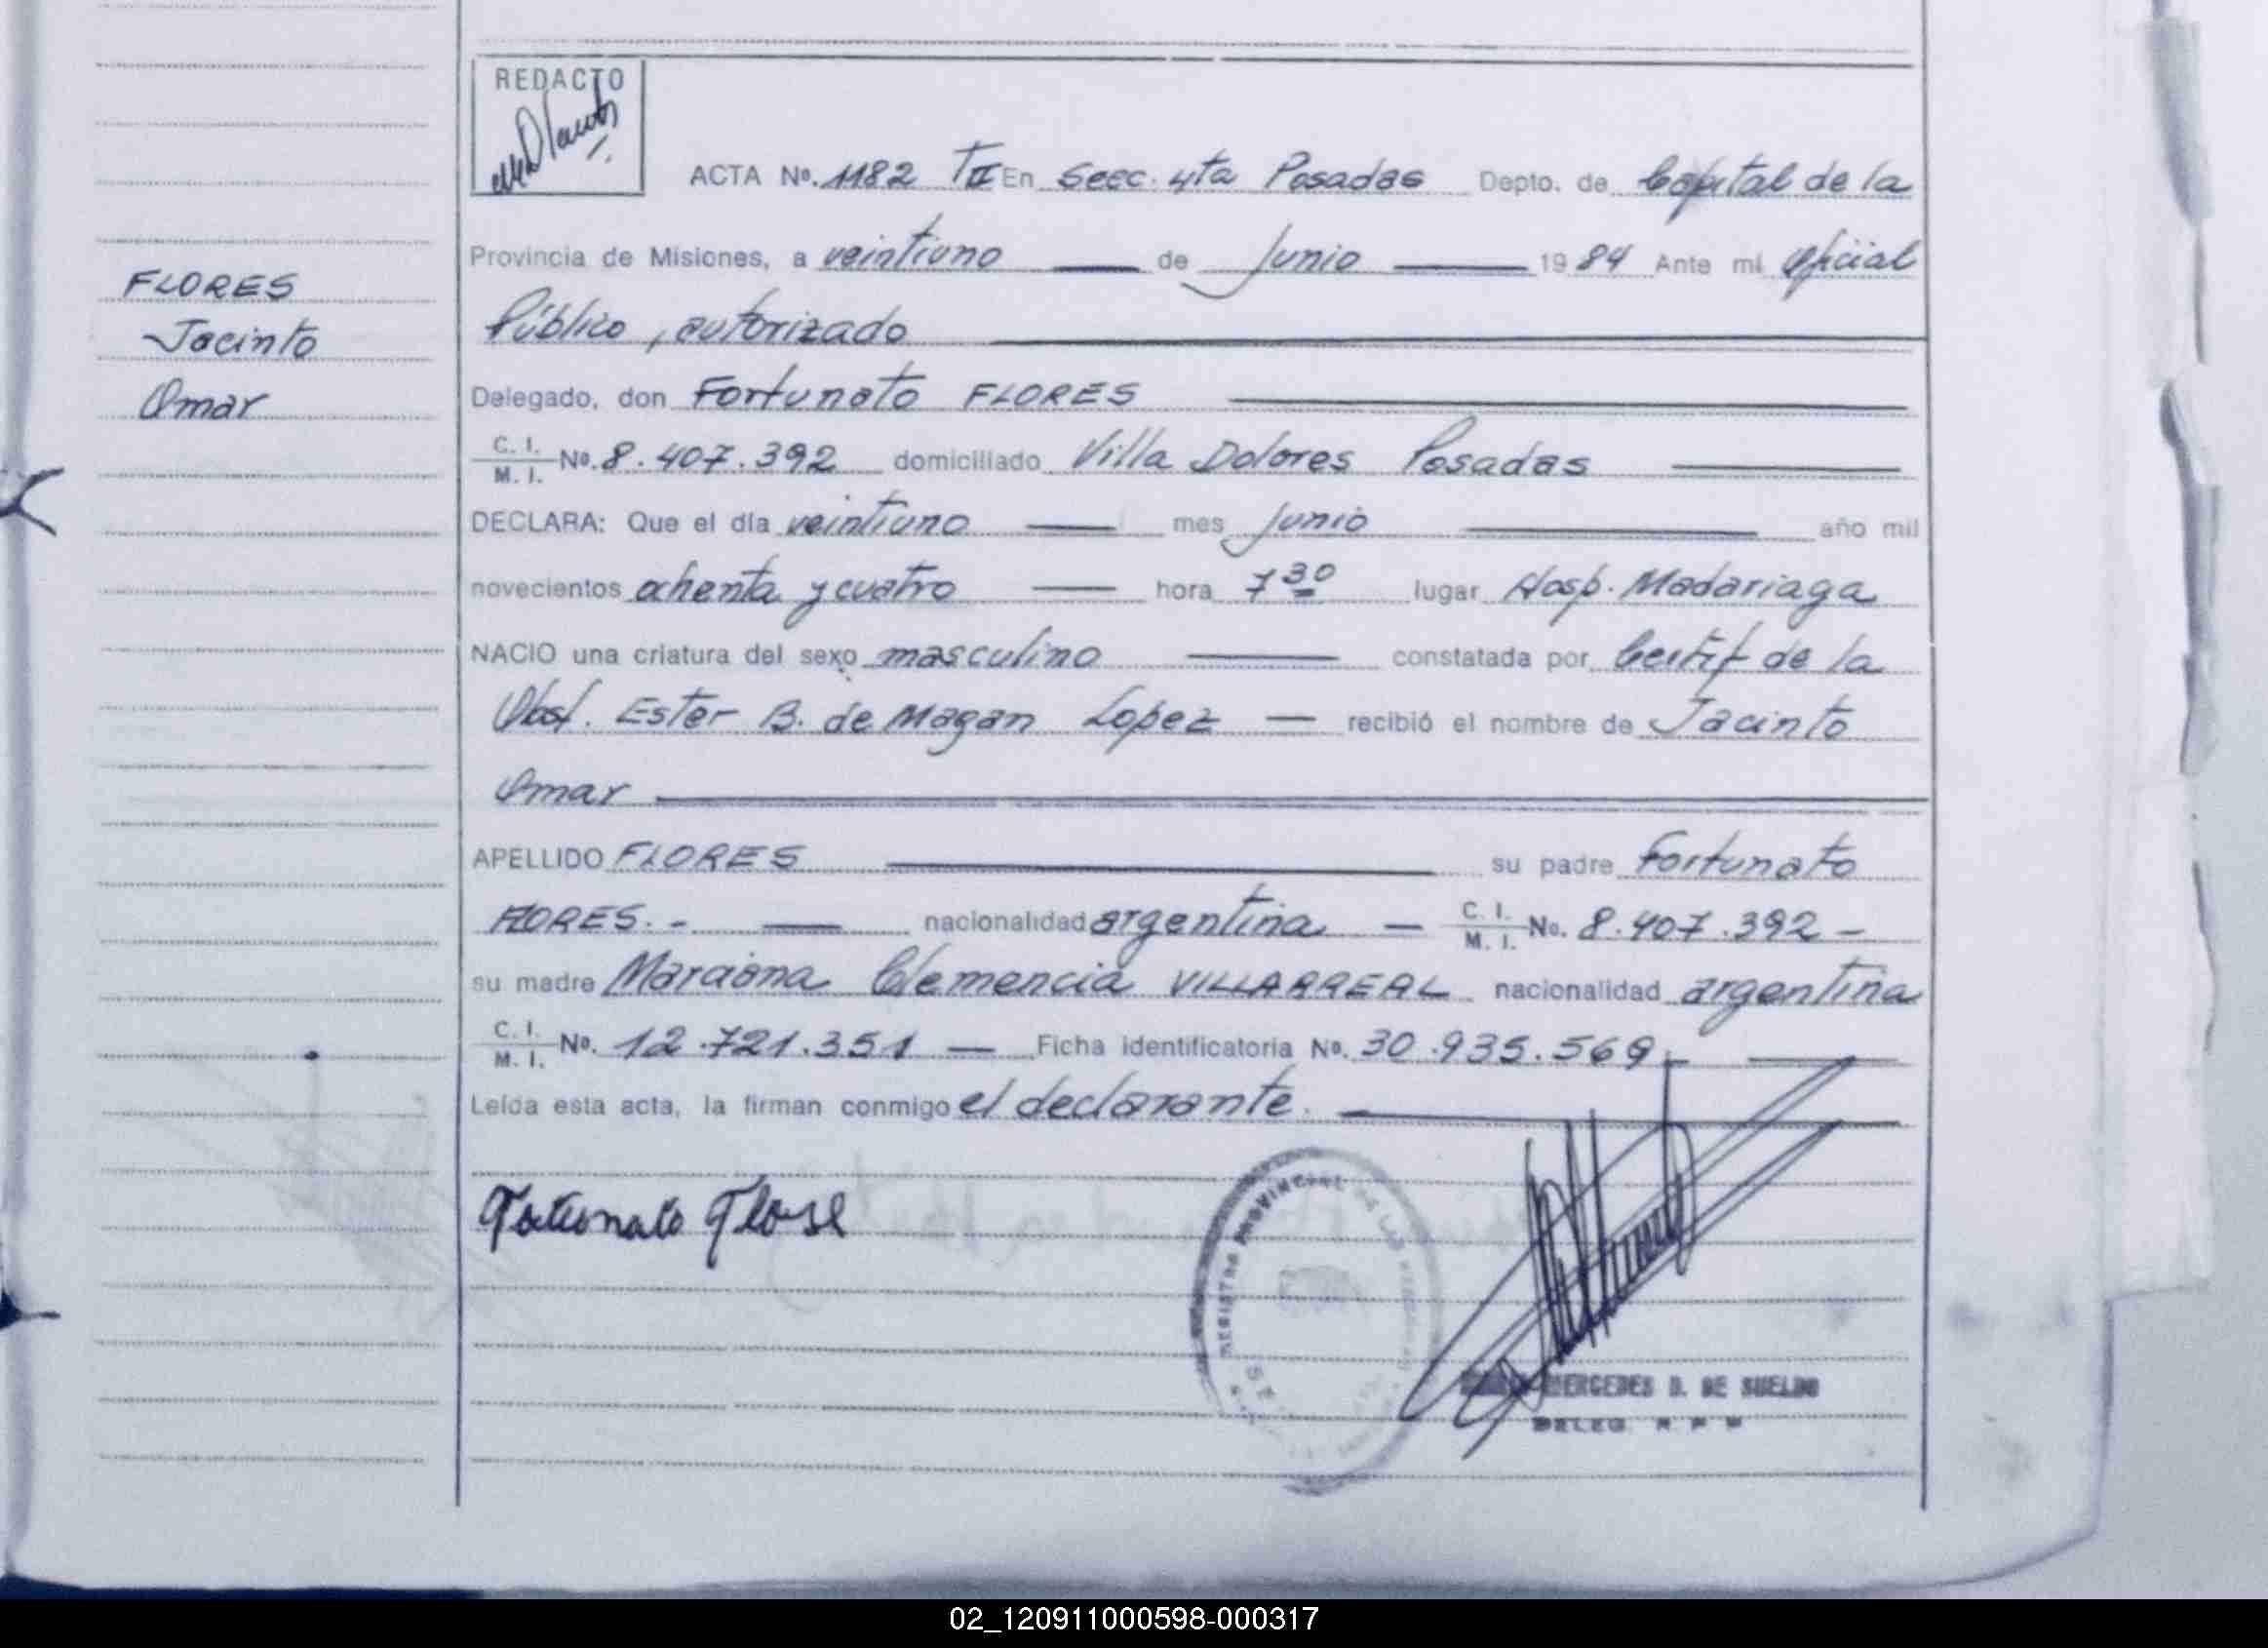 REDACTO
ACTA Nº. 1182 TII En Secc. 4ta Posadas Depto. de Capital de la
Provincia de Misiones, a veintiuno de Junio 1984 Ante mi Oficial
Público, autorizado
FLORES
Jacinto
Omar
Delegado, don Fortunato FLORES
C. I.
M. I. Nº. 8.407.392 domiciliado Villa Dolores Posadas
DECLARA: Que el día veintiuno mes Junio año mil
novecientos ochenta y cuatro hora 7 30 lugar Hosp. Madariaga
NACIO una criatura del sexo masculino constatada por Certif de la
Obst. Ester B. de Magan Lopez — recibió el nombre de Jacinto
Omar
APELLIDO FLORES su padre Fortunato
FLORES.- nacionalidad argentina — C. I.
M. I. Nº. 8.407.392 —
su madre Clemencia VILLARREAL nacionalidad argentina
C. I.
M. I. Nº. 12.721.351 — Ficha identificatoria Nº. 30.935.569.-
Leída esta acta, la firman conmigo el declarante.
REGISTRO PROVINCIAL DE LAS
MERCEDES D. DE SUELDO
DELEG. R P M
02_120911000598-000317